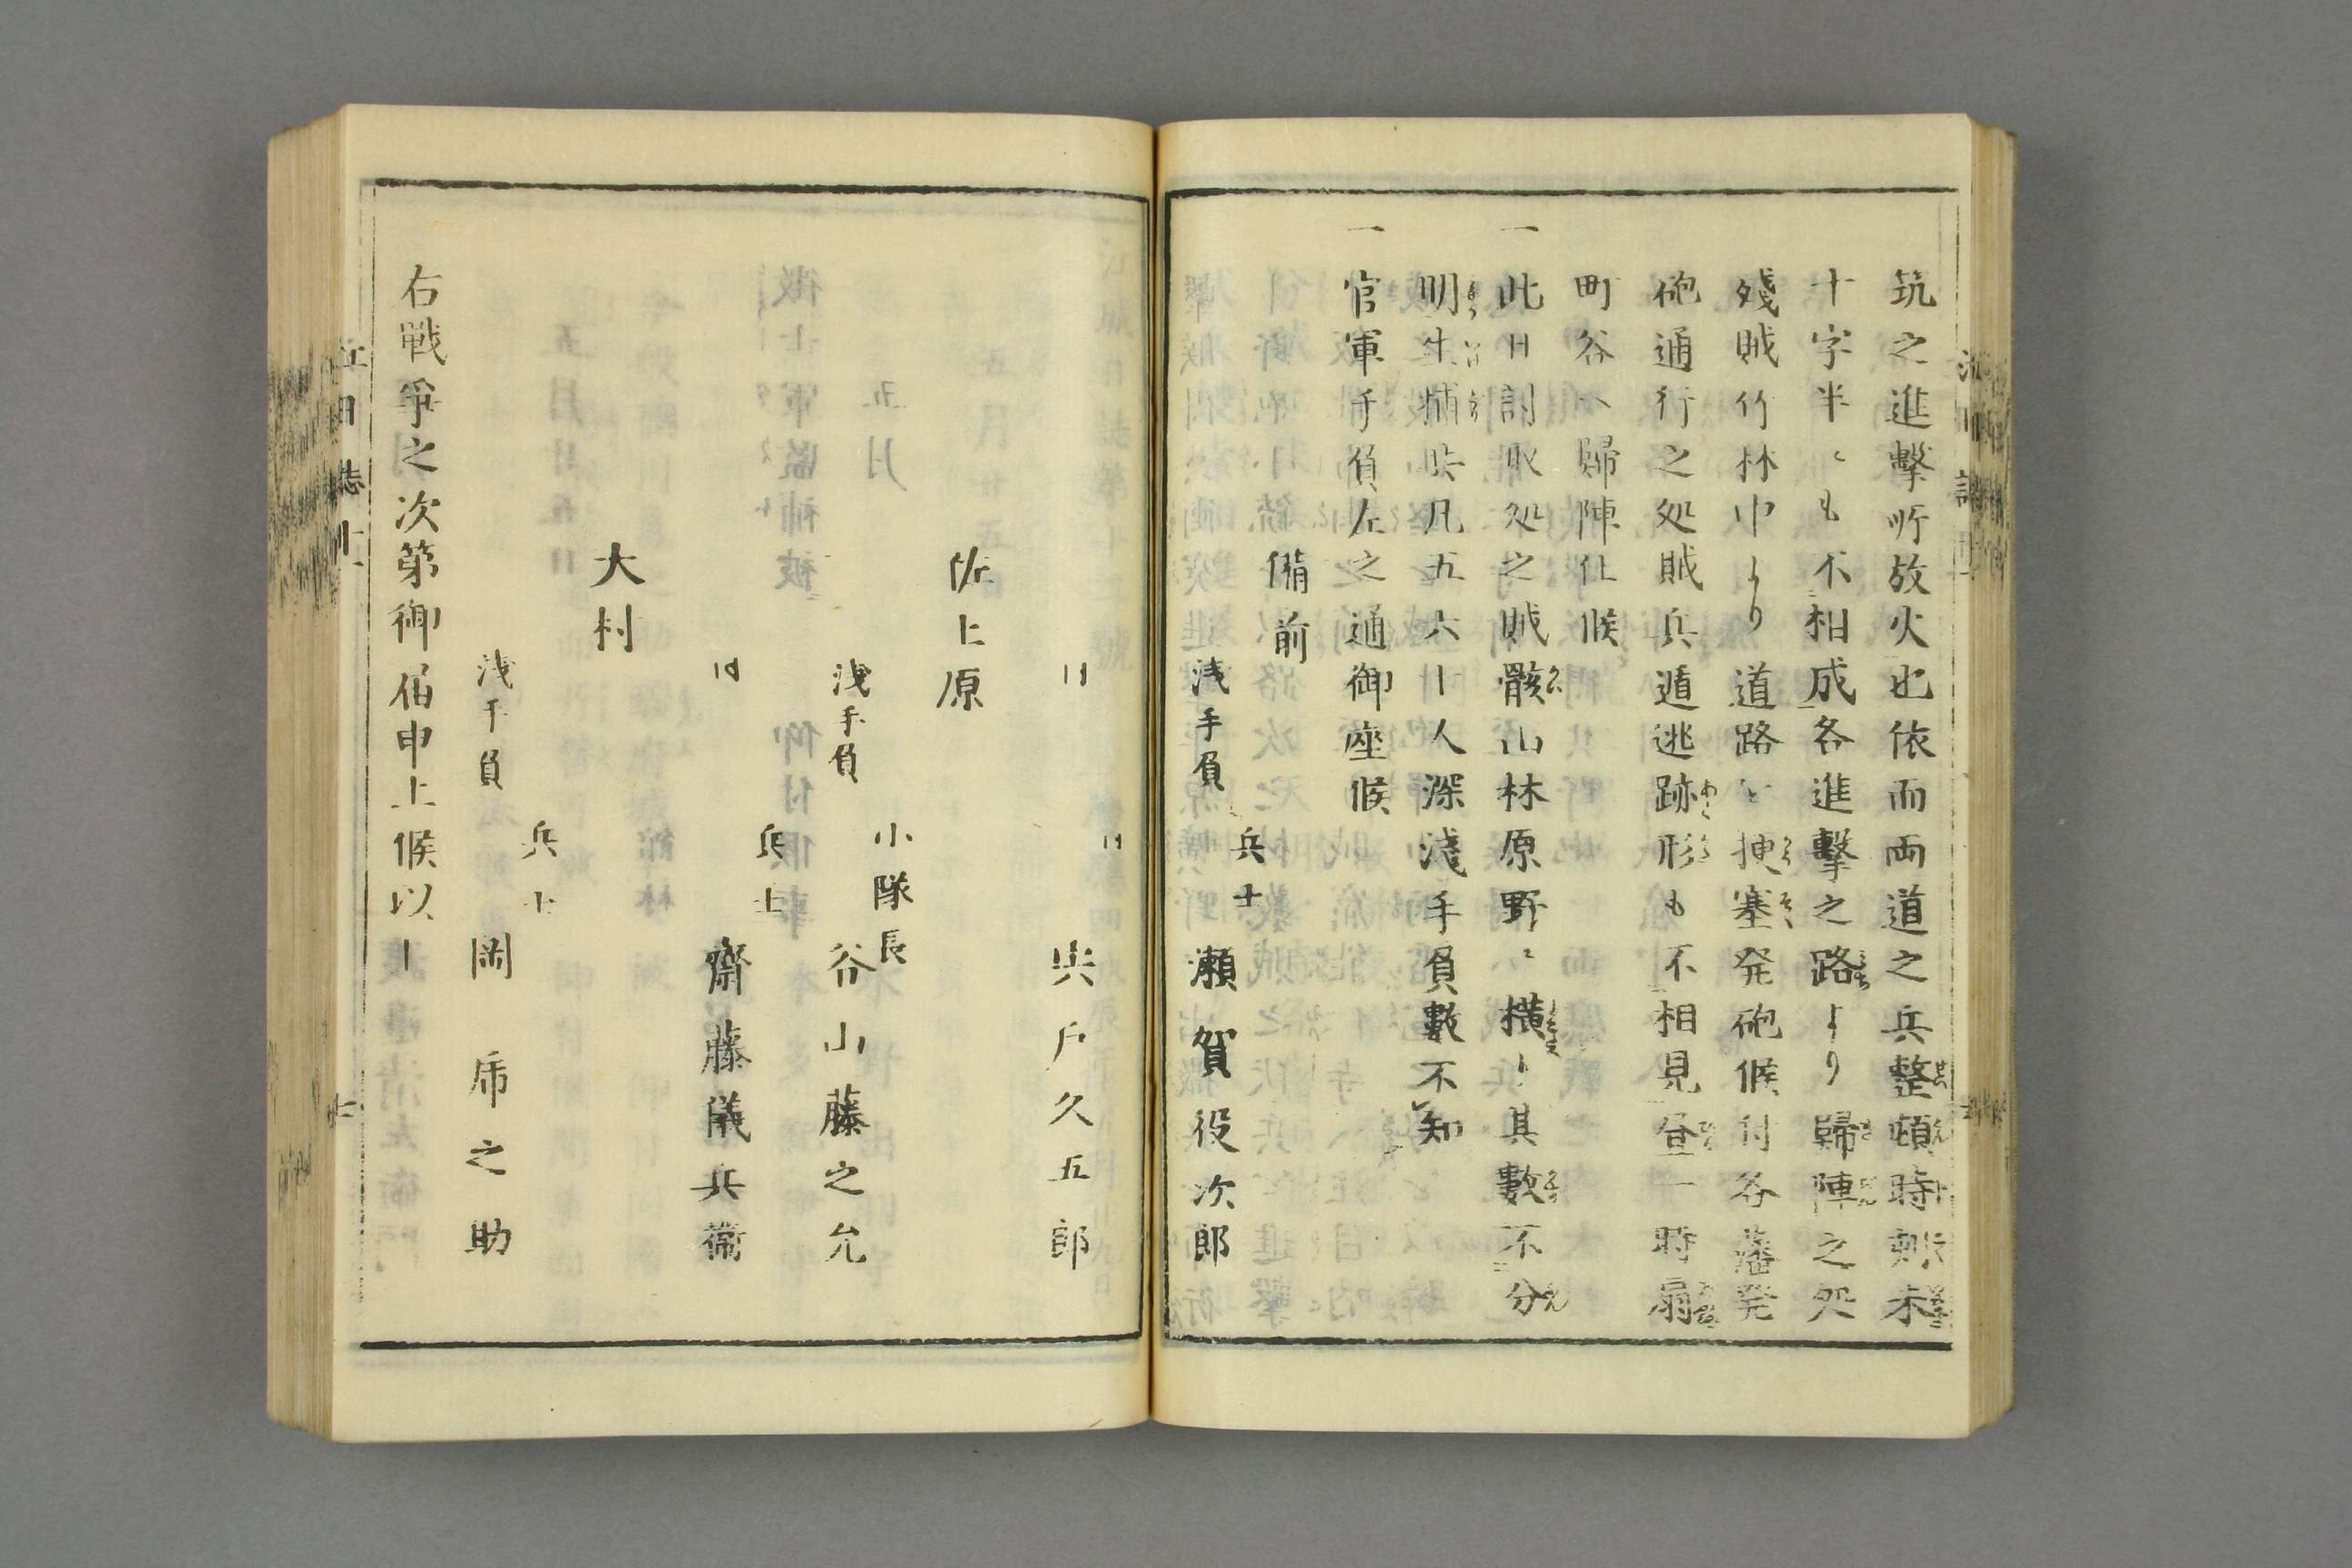 筑之進撃所放火也依而両道之兵整頓時刻未
十字半ニも不相成各進撃之路より歸陣之処
殘賊竹林中より道路を挭塞発砲候付各藩発
砲通行之処賊兵遁逃跡形も不相見昼一時扇
町谷へ歸陣仕候
一此日討取処之賊骸山林原野ニ横り其數不分
明生捕共凡五六十人深淺手負數不知
一官軍手負左之通御座候
備前
兵士
淺手負 瀬賀役次郎
同
同 宍戶久五郎
佐土原
小隊長
淺手負 谷山藤之允
兵士
同 齋藤儀兵衞
大村
兵士
淺手負 岡乕之助
右戦爭之次第御届申上候以上
江日誌十
七